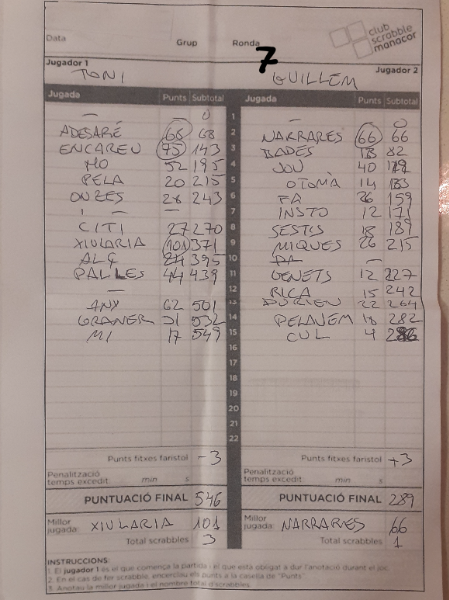 Data Grup Ronda 7
club scrabble manacor
Jugador 1 Jugador 2
TONI GUILLEM
Jugada Punts Subtotal Jugada Punts Subtotal
— 0 1 — 0
ADESARÉ 68 68 2 NARRARES 66 66
ENCAREU 75 143 3 BADES 82
HO 52 195 4 JOU 40
PELA 20 215 5 OTOMÀ 14
ONZES 28 243 6 FA 26 159
— 7 INSTO 12 171
CITI 27 270 8 SESTIS 18 189
XIULARIA 101 371 9 MIQUES 26 215
ALÇ 24 395 10 —
PALLES 44 439 11 GENETS 12 227
— 12 RICA 15 242
ANY 62 501 13 22 264
GRANER 31 532 14 PELAVEM 18 282
MI 17 549 15 CUL 4 286
16
17
18
19
20
21
22
Punts fitxes faristol -3 Punts fitxes faristol +3
Penalització temps excedit min s Penalització temps excedit min s
PUNTUACIÓ FINAL 546 PUNTUACIÓ FINAL 289
Millor jugada: XIULARIA 101 Millor jugada: NARRARES 66
Total scrabbles 3 Total scrabbles 1
INSTRUCCIONS:
1. El jugador 1 és el que comença la partida i el que està obligat a dur l'anotació durant el joc.
2. En el cas de fer scrabble, encercleu els punts a la casella de "Punts".
3. Anoteu la millor jugada i el nombre total d'scrabbles.